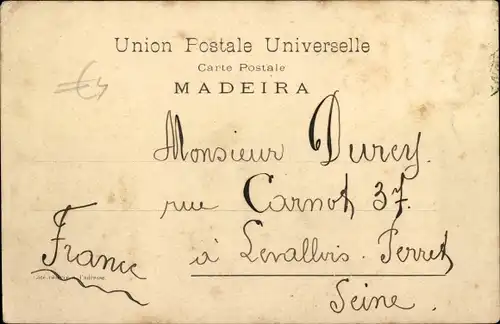 Union Postale Universelle
Carte Postale
MADEIRA
€4
Monsieur Durey.
rue Carnot 37.
à Levallois-Perret
France
Seine.